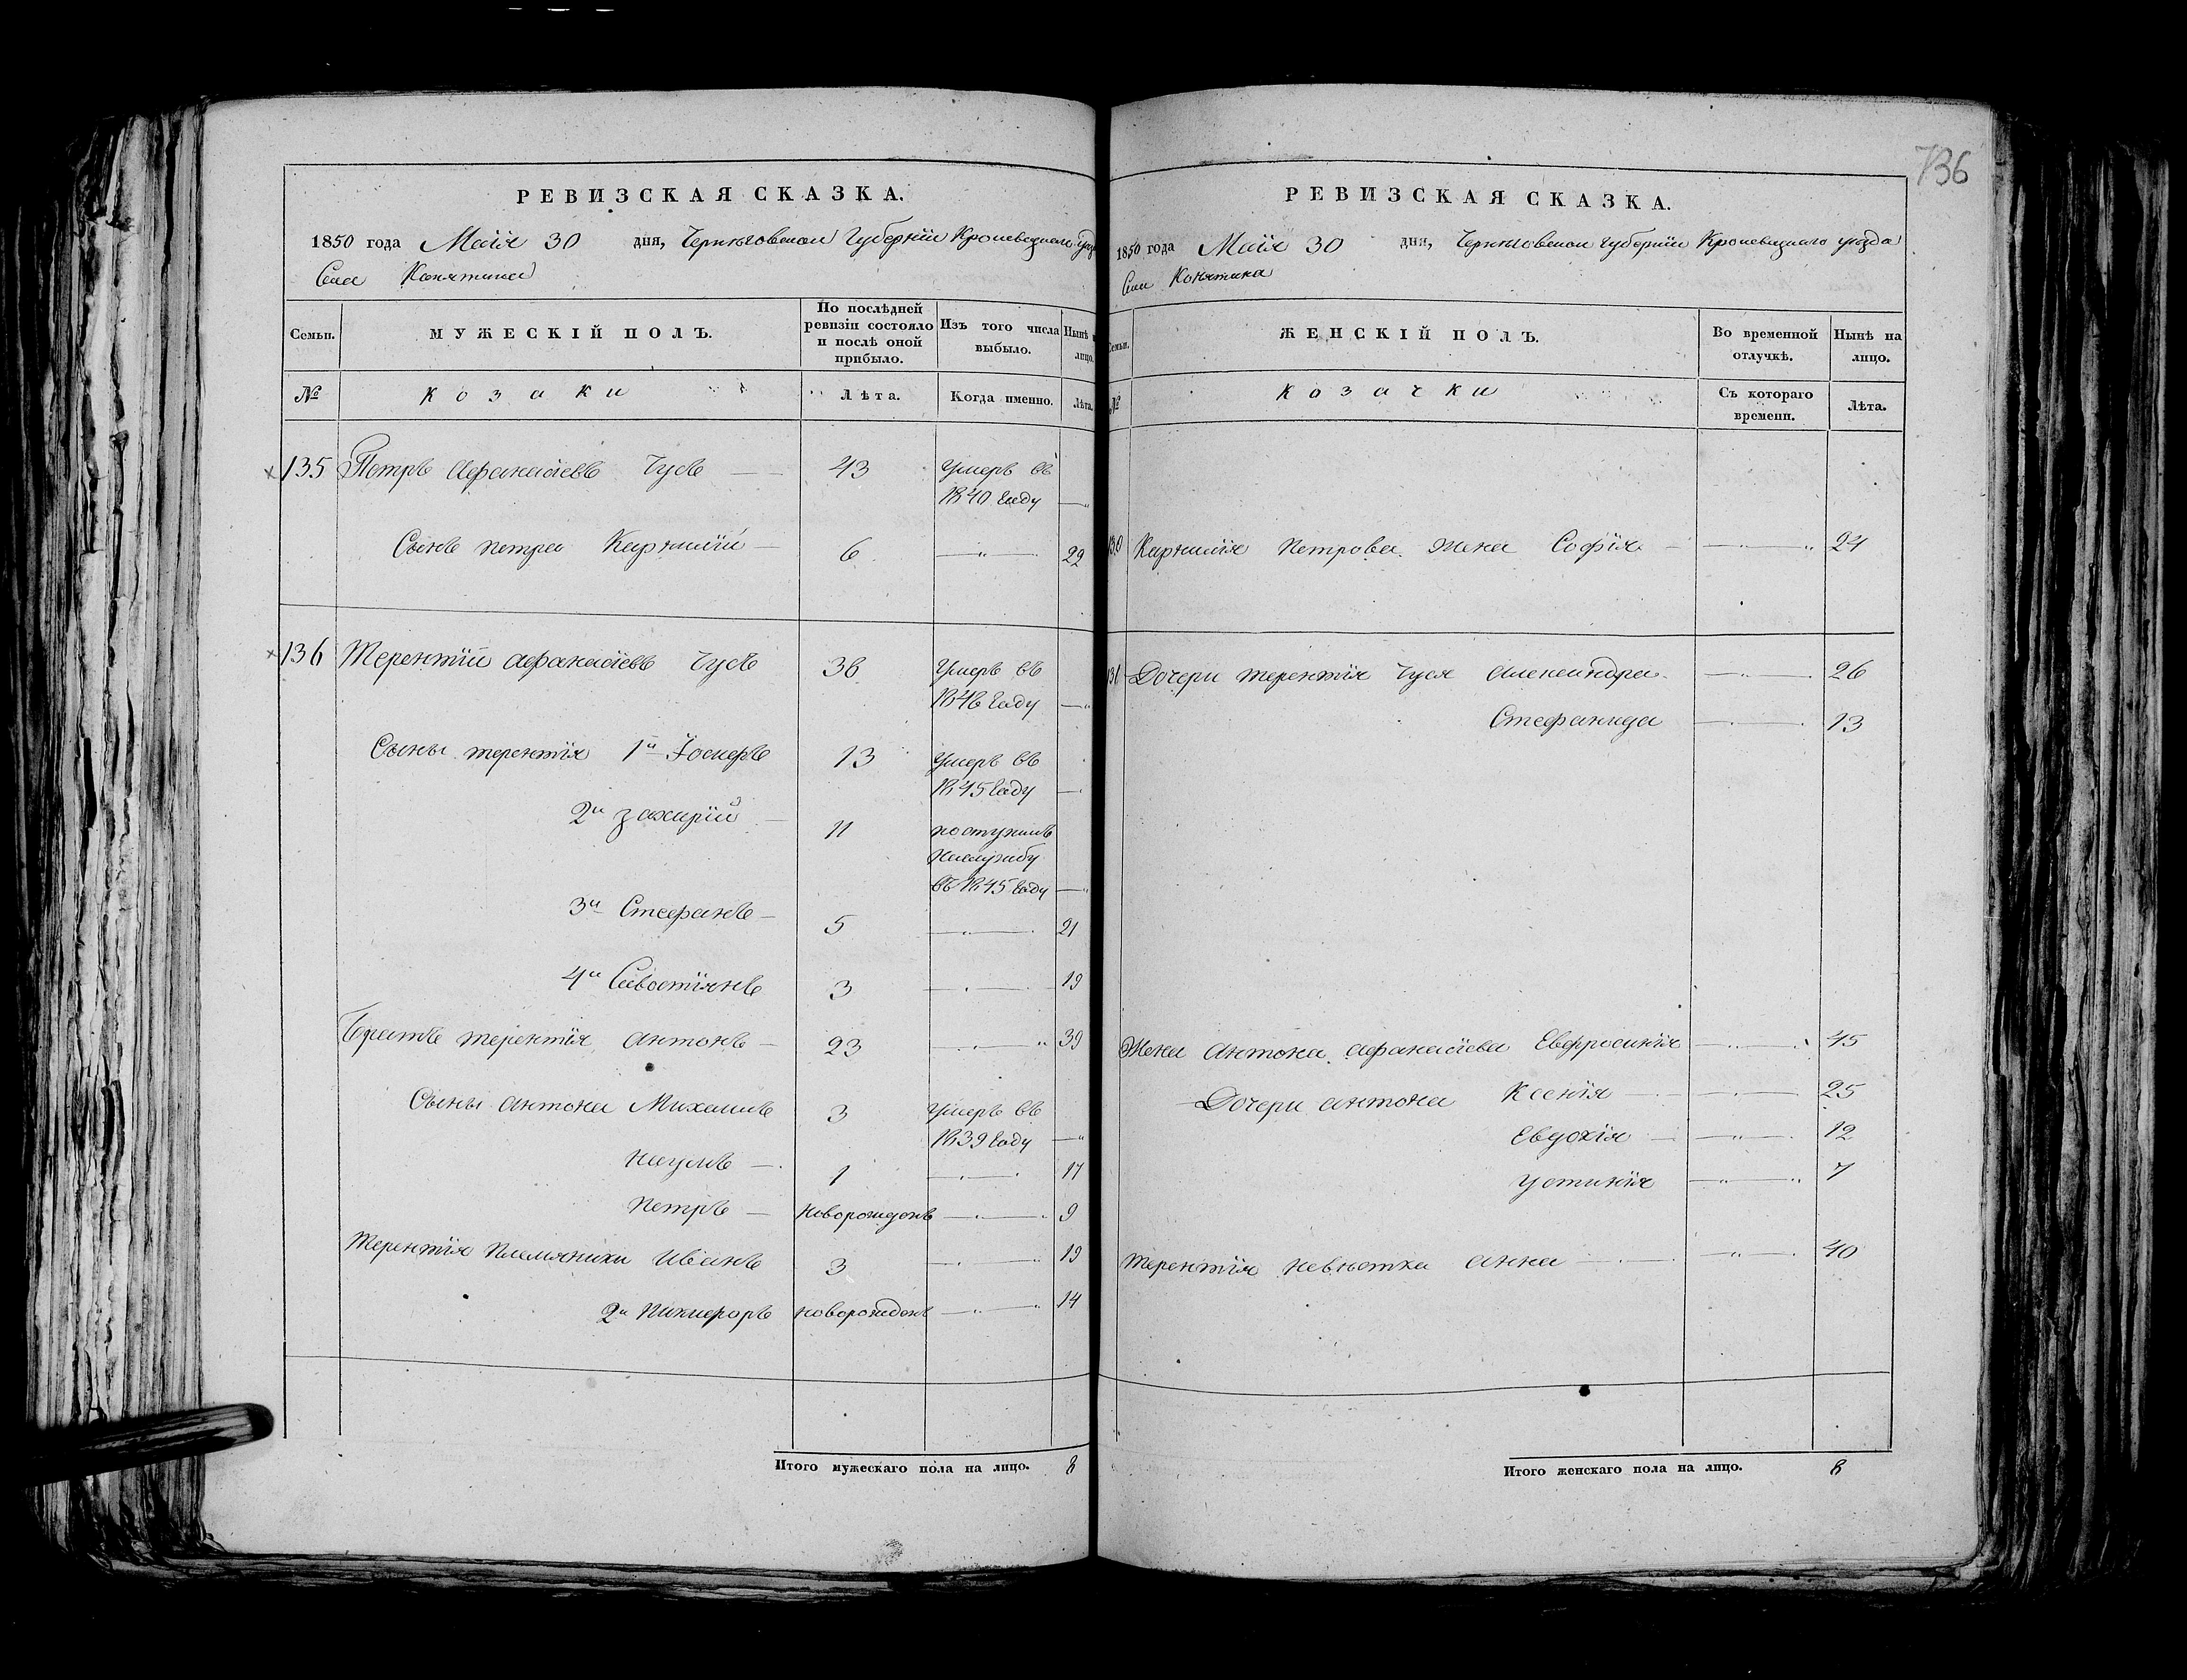 736
РЕВИЗСКАЯ СКАЗКА.
1850 года Маія 30 дня, Черниговской Губерніи Кролевецкаго уезда
Села Конятина
Семьи. МУЖЕСКІЙ ПОЛЪ. По послѣдней ревизіи состояло и послѣ оной прибыло. Изъ того числа выбыло. Нынѣ на лицо.
№ Козаки Лѣта. Когда именно. Лѣта.
135 Петръ Афанасіевъ Гусь 43 Умеръ въ
1840 Году
Сынъ петра Карнилій 6 22
136 Терентій Афанасіевъ Гусь 38 Умеръ въ
1848 Году
Сыны терентія 1й Іосифъ 13 Умеръ въ
1845 Году
2й Захарій 11 поступилъ
наслужбу
въ 1845 Году
3й Стефанъ 5 21
4й Севостіянъ 3 19
Братъ терентія Антонъ 23 39
Сыны Антона Михаилъ 3 Умеръ въ
1839 Году
Наумъ 1 17
Петръ новорожденъ 9
Терентія племяники Иванъ 3 19
2й Никифоръ новорожденъ 14
Итого мужескаго пола на лицо. 8
РЕВИЗСКАЯ СКАЗКА.
1850 года Маія 30 дня, Черниговской Губерніи Кролевецкаго уезда
Села Конятина
Семьи. ЖЕНСКІЙ ПОЛЪ. Во временной отлучкѣ. Нынѣ на лицо.
№ Козачки Съ котораго времени. Лѣта.
Карнилія Петрова жена Софія 24
Дочери терентія Гуся Александра 26
Стефанида 13
Жена Антона Афанасіева Евфросинія 45
Дочери Антона Ксенія 25
Евдокія 12
Устинія 7
Терентія невѣстка Анна 40
Итого женскаго пола на лицо. 8